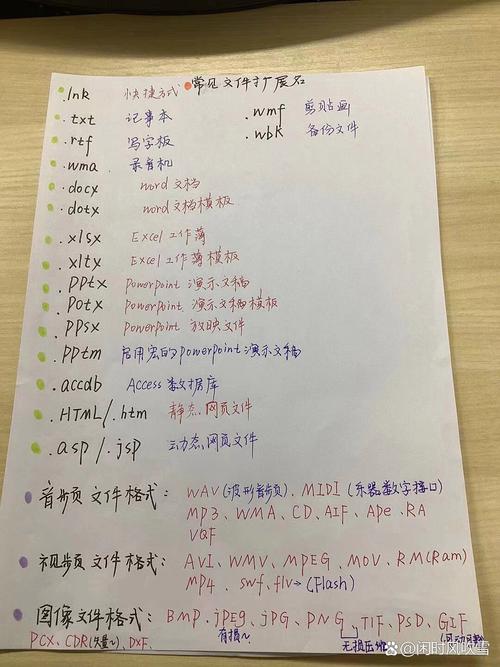 常见文件扩展名
.lnk 快捷方式
.txt 记事本
.rtf 写字板
.wma 录音机
.wmf 剪贴画
.wbk 备份文件
.docx word文档
.dotx word文档模板
.xlsx Excel工作薄
.xltx Excel工作薄模板
.PPtx PowerPoint 演示文稿
.Potx PowerPoint 演示文稿模板
.PPsx PowerPoint 放映文件
.PPtm 启用宏的PowerPoint演示文稿
.accdb Access数据库
.HTML/.htm 静态网页文件
.asp/.jsp 动态网页文件
音频文件格式: WAV(波形音频)、MIDI(乐器数字接口)
MP3、WMA、CD、AIF、APe、RA
VQF
视频文件格式: AVI、WMV、MPEG、MOV、RM(Ram)
MP4、swf、flv→(Flash)
图像文件格式: BMP、jPEg、jPG、PNG、TIF、PSD、GIF
有损~ 无损压缩
PCX、CDR(矢量~)、DXF、
@闲时风吹雪